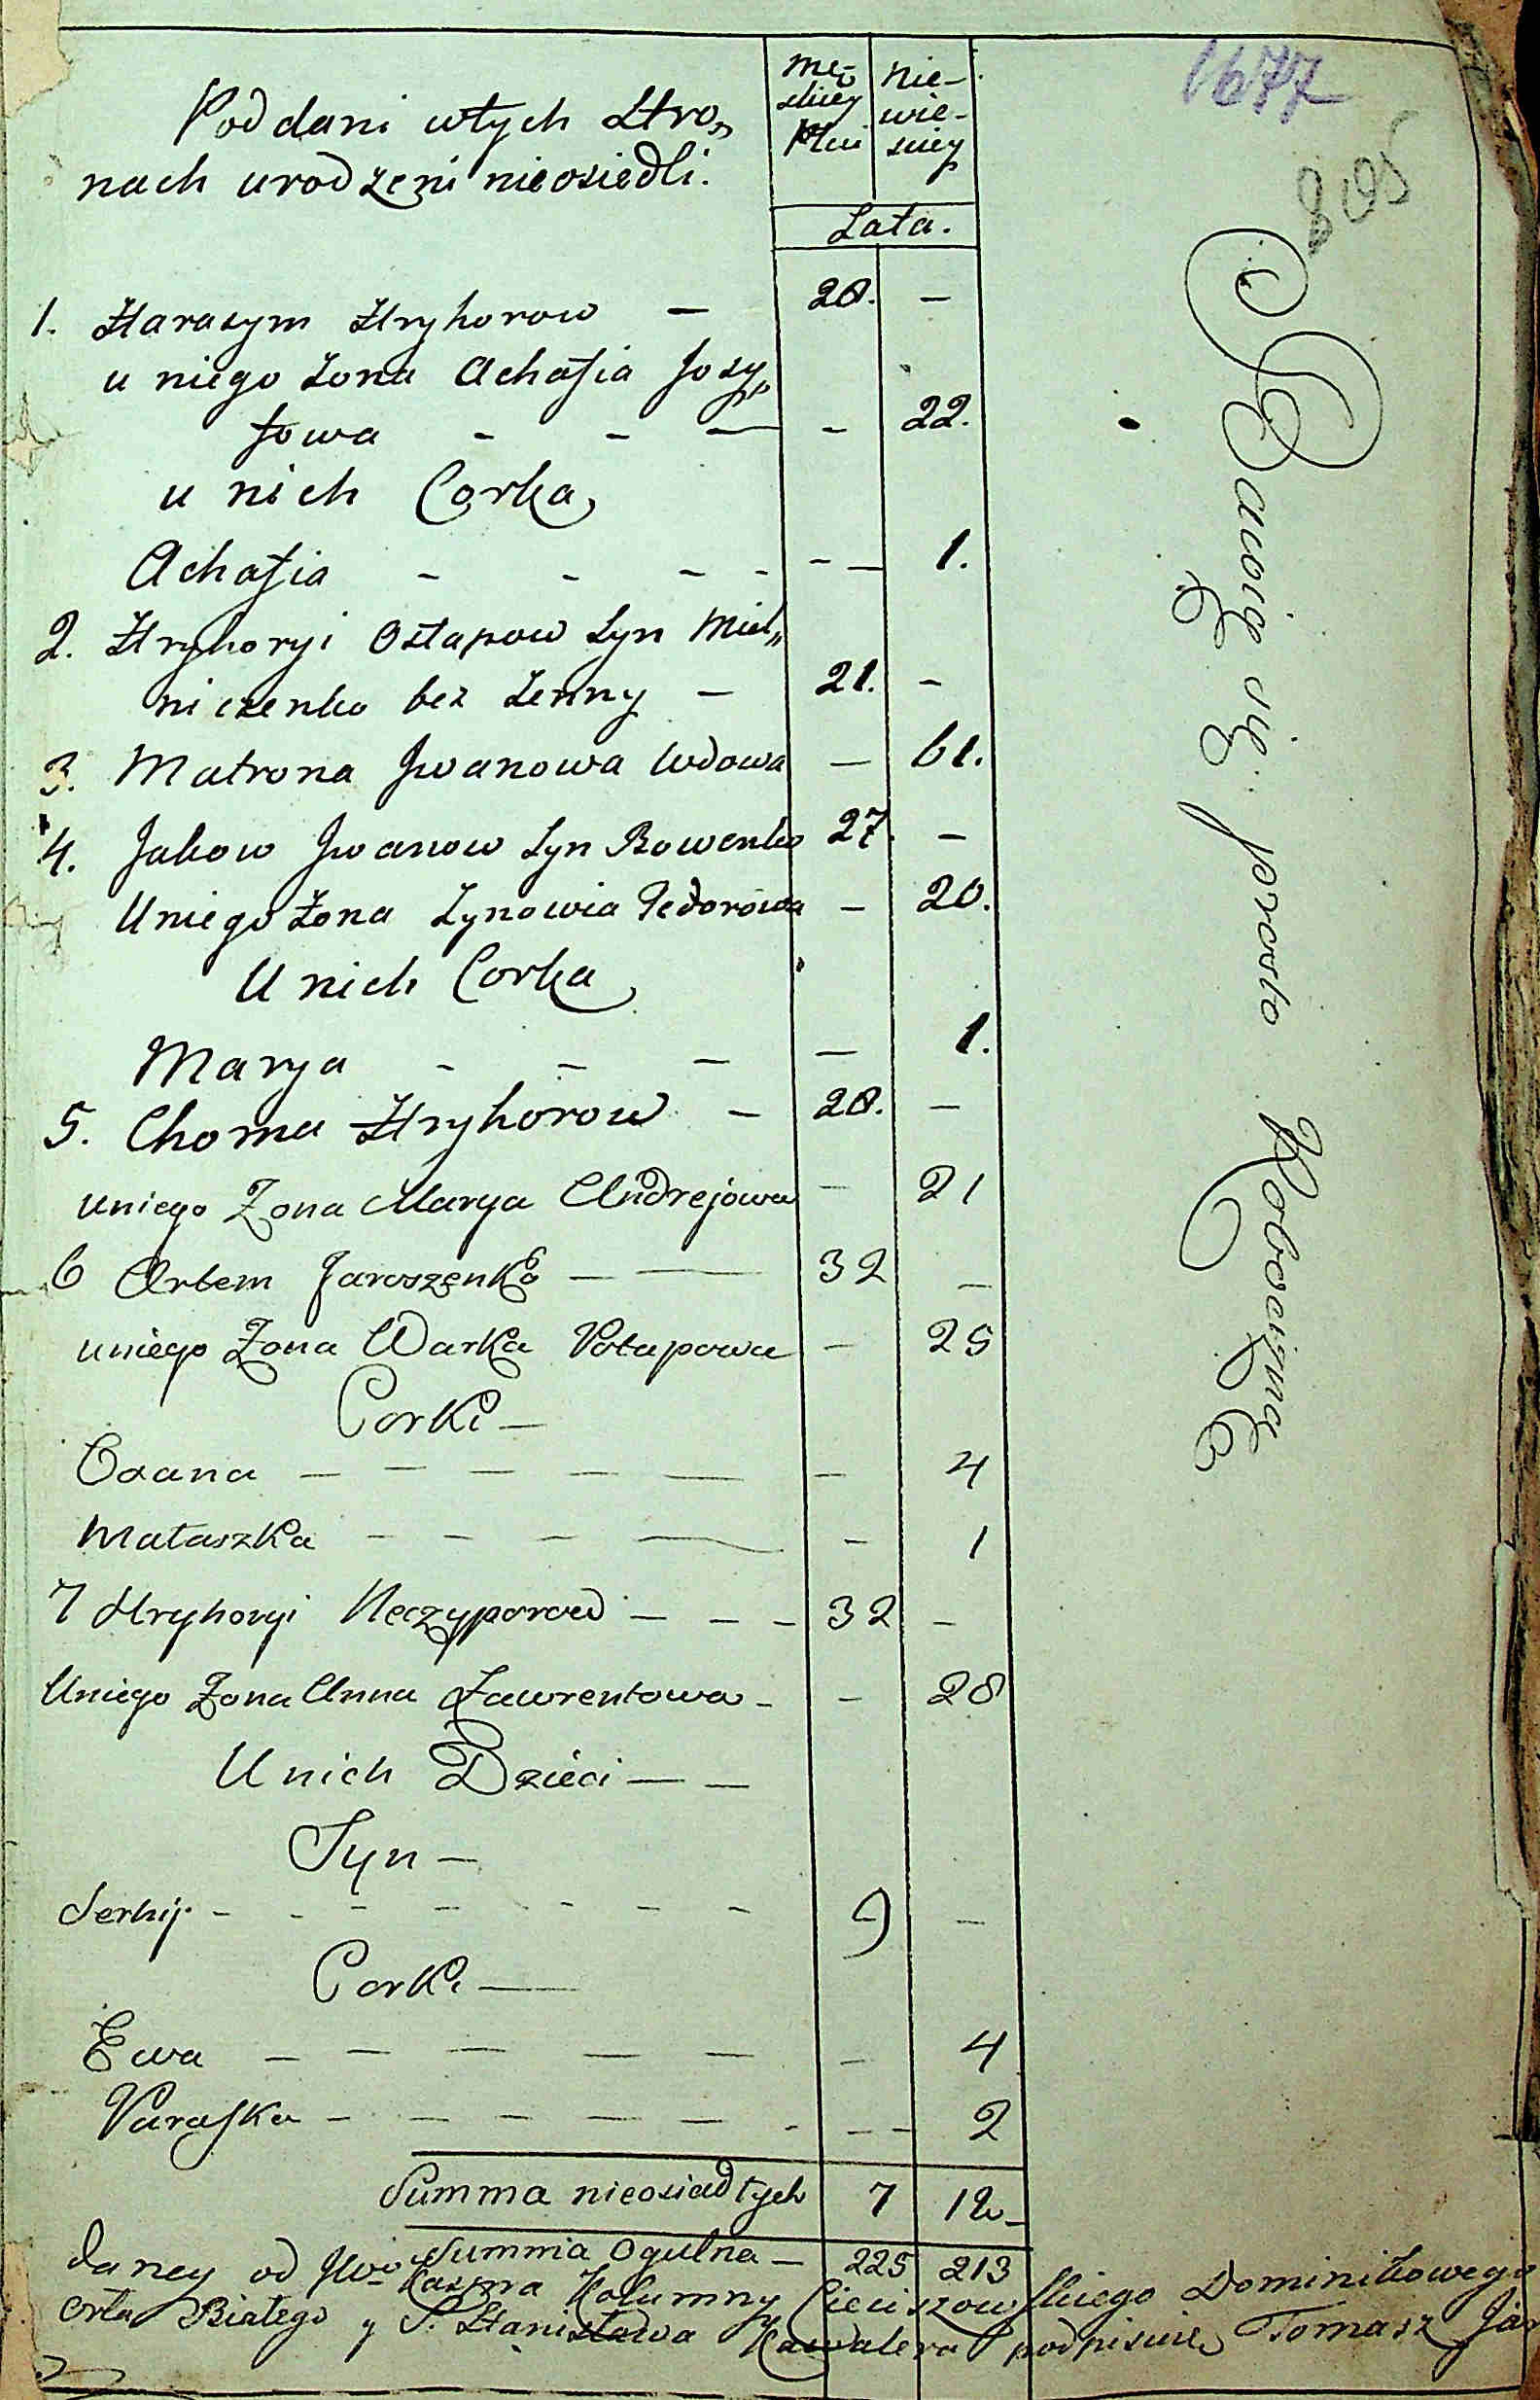 Poddani wtych Stro„
nach urodzeni nieosiedli.
mę-
skiey
Płci
nie-
wie-
sciey
Lata.
1677
805
1. Harasym Hryhorow — 28. —
u niego Żona Achafia Josy„
fowa - - — - 22.
u nich Corka
Achafia - - - - - — 1.
2. Hryhoryi Ostapow Syn Miel„
niczenko bez Żenny — 21. -
3. Matrona Jwanowa Wdowa — 61.
4. Jakow Jwanow Syn Bowenko 27. —
Uniego Żona Zynowia Fedorowa — 20.
U nich Corka
Marya - - — — 1.
5. Choma Hryhorow — 28. —
uniego Żona Marya Andrejowa — 21
6 Artem Jaroszenko — — 32 —
uniego Żona Warka Potapowa — 25
Corki —
Oxana — — — — — — 4
Mataszka - - - — - 1
7 Hryhoryi Neczyporow — — - 32 —
Uniego Żona Anna Ławrentowa - — 28
U nich Dzieci — —
Syn —
Serhij - - - - - - - - 9 —
Corki —
Ewa — — — — — — 4
Paraska - — — — — - — - 2
Summa nieosiadłych 7 12 -
Summa Ogulna — 225 213
daney od Jwo Kaspra Kolumny Cieciszowskiego Dominikowego
Orła Białego y S. Stanisława Kawalera podpisuię Tomasz Jar